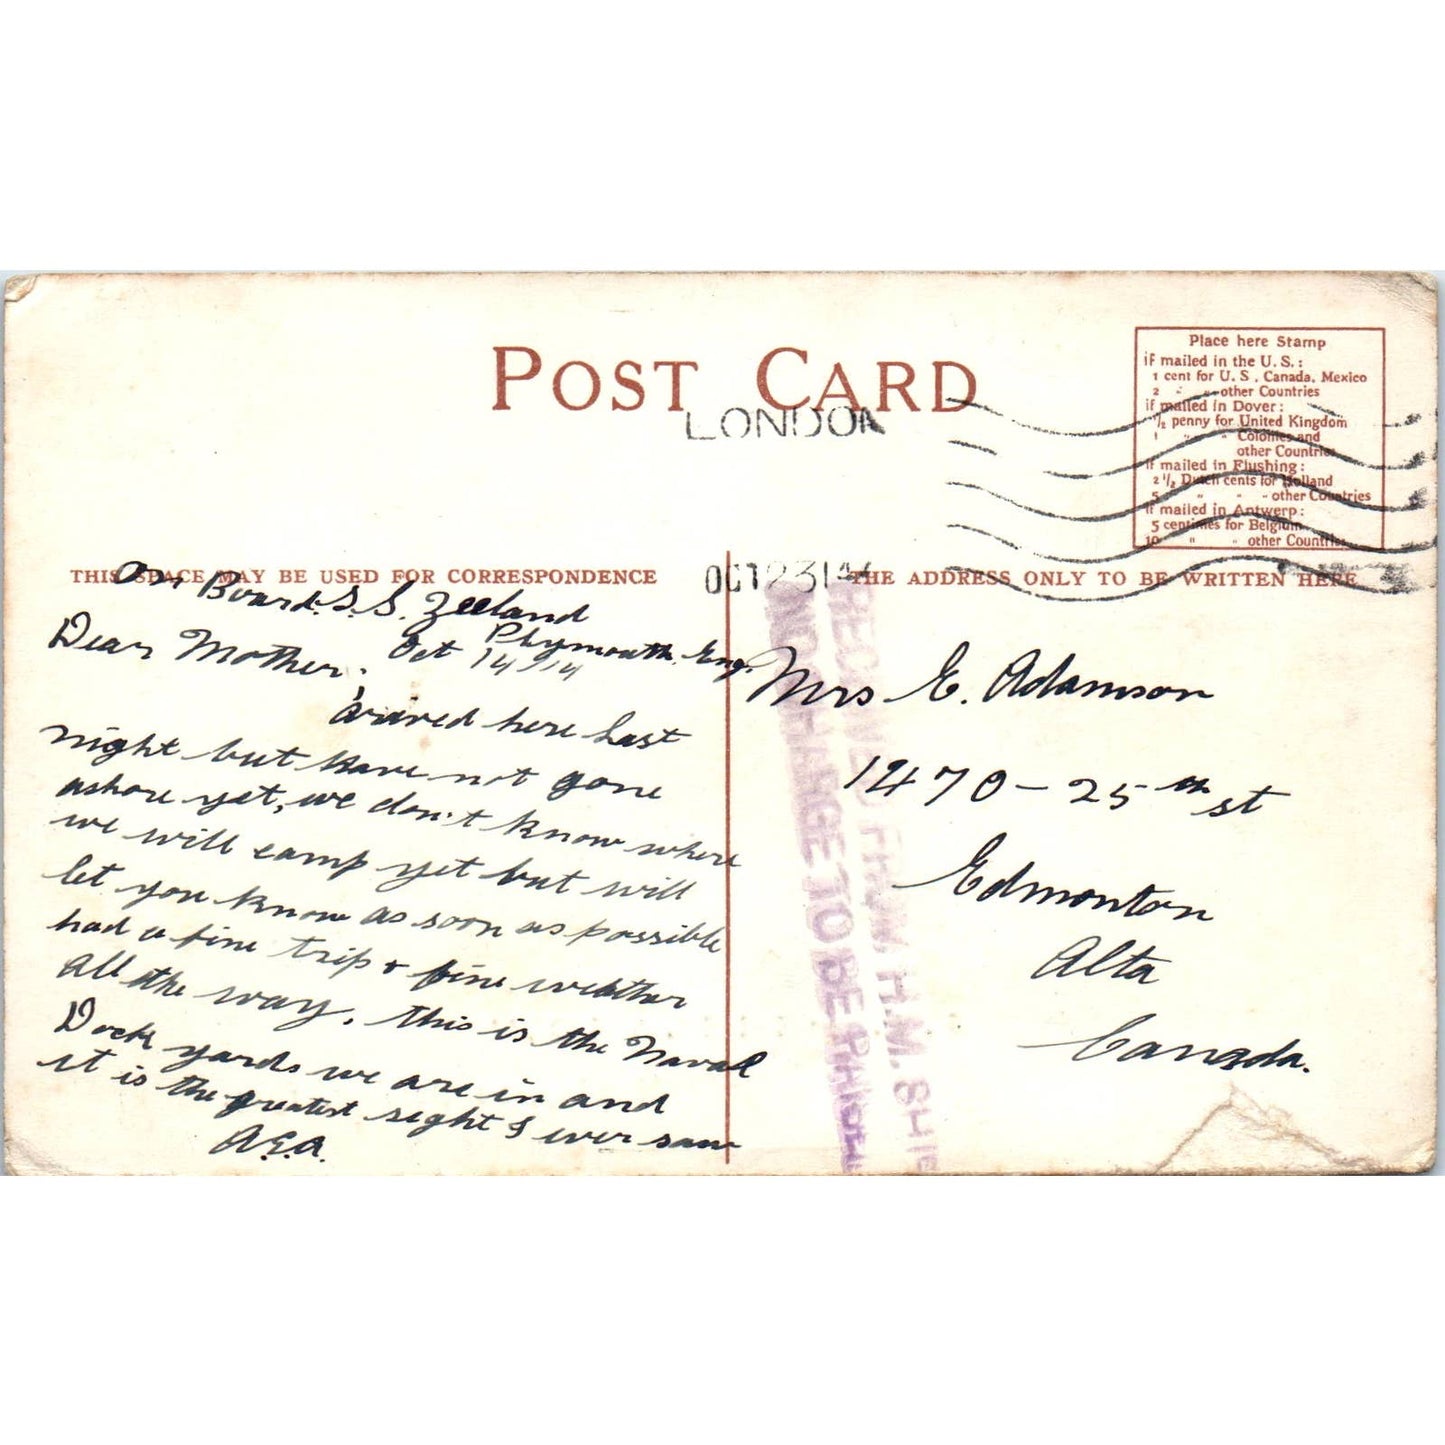 POST CARD
LONDON
Place here Stamp
if mailed in the U.S.:
1 cent for U.S, Canada, Mexico
2 " " other Countries
if mailed in Dover:
1/2 penny for United Kingdom
1 " " Colonies and
other Countries
if mailed in Flushing:
2 1/2 Dutch cents for Holland
5 " " " other Countries
if mailed in Antwerp:
5 centimes for Belgium
10 " " other Countries
THIS SPACE MAY BE USED FOR CORRESPONDENCE
OCT 23 14
THE ADDRESS ONLY TO BE WRITTEN HERE
On Board S.S. Zeeland
Plymouth. Eng.
Oct 14/14
Dear Mother.
arived here last
night but have not gone
ashore yet, we don't know where
we will camp yet but will
let you know as soon as possible
had a fine trip + fine weather
all the way, this is the Naval
Dock yards we are in and
it is the greatest sight I ever saw
A.E.A.
Mrs E. Adamson
1470-25th st
Edmonton
Alta
Canada.
RECEIVED FROM H.M. SHIP
NO CHARGE TO BE RAISED